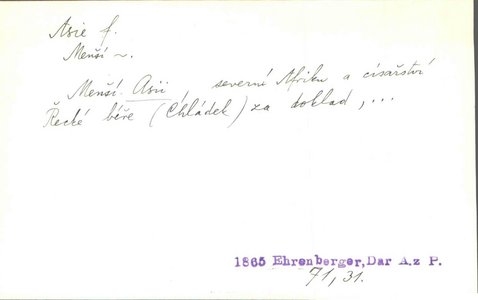 Asie f.
Menší ~.
Menší Asii, severní Afriku a císařství
Řecké béře (Chládek) za doklad, ...
1865 Ehrenberger, Dar A.z P.
71, 31.